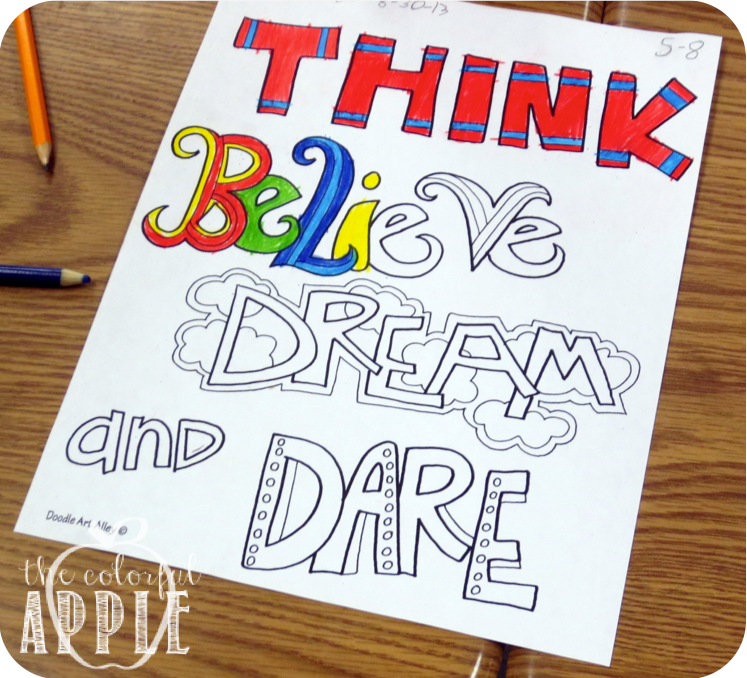 8-30-13
5-8
THINK
BeLieVe
DREAM
and DARE
Doodle Art Alley ©
the colorful
APPLE